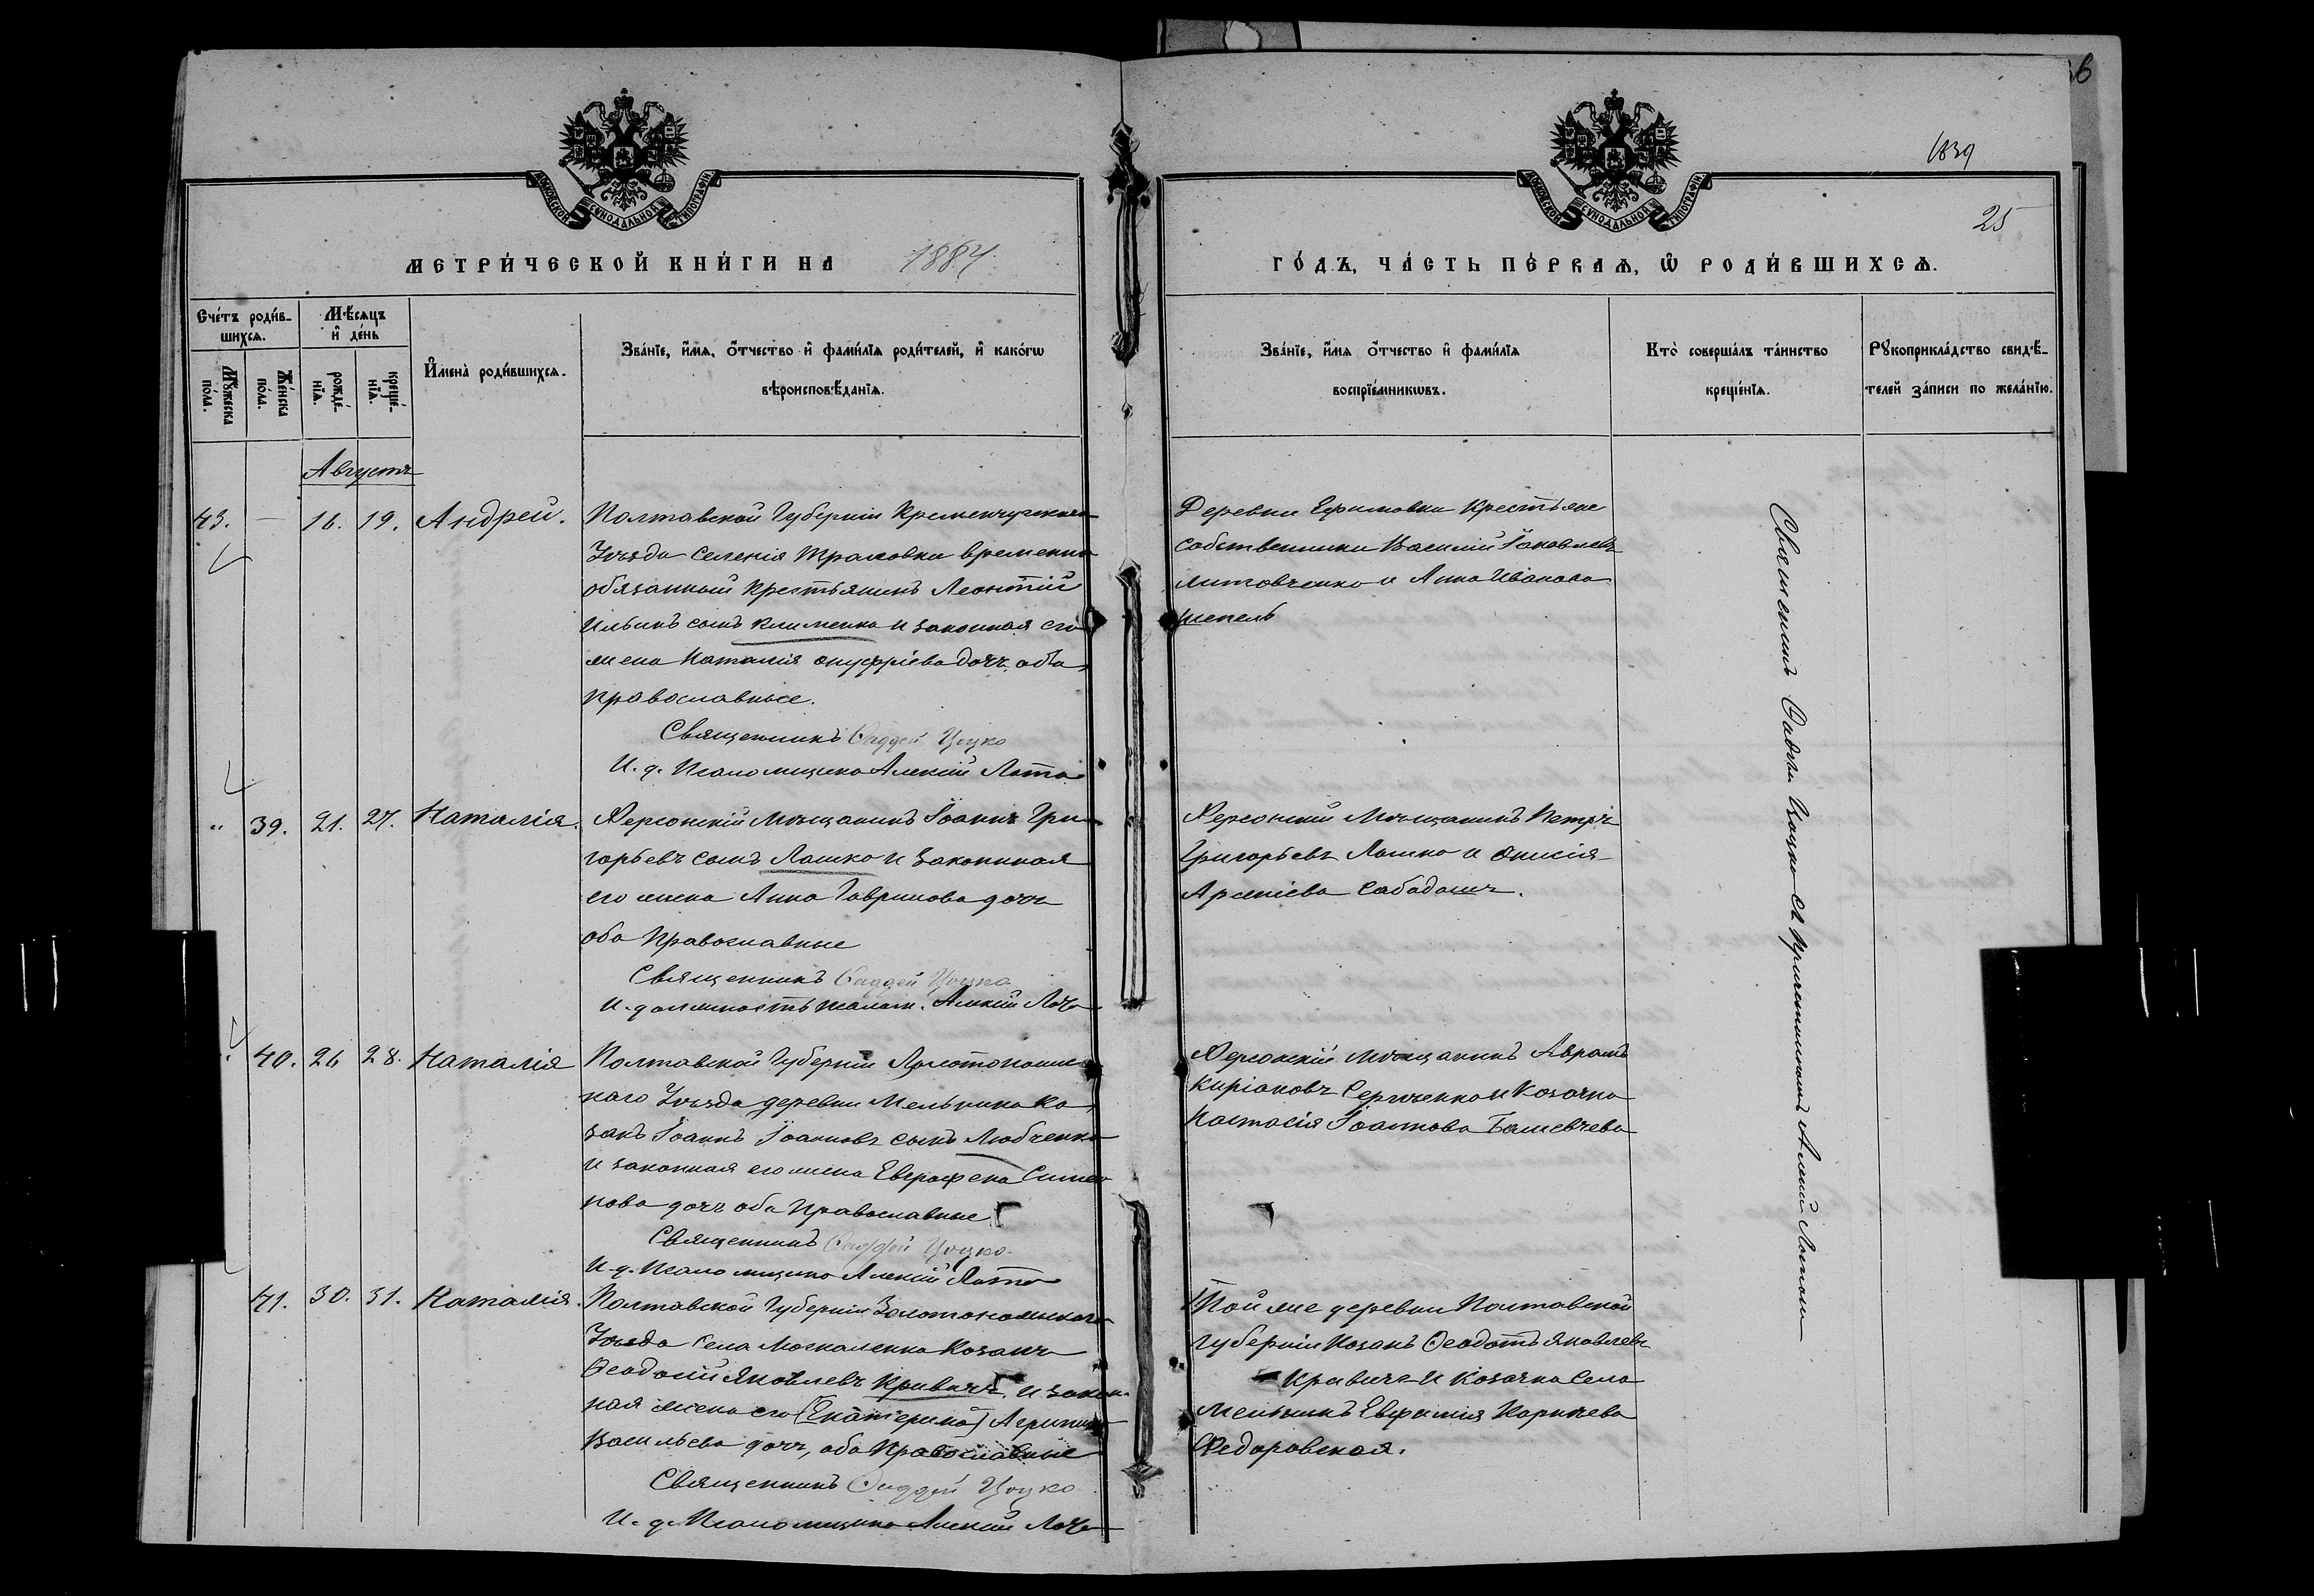 6
1839
25
МОСКОВСКОЙ СѴНОДАЛЬНОЙ ТИПОГРАФІИ
МОСКОВСКОЙ СѴНОДАЛЬНОЙ ТИПОГРАФІИ
МЕТРИ́ЧЕСКОЙ КНИ́ГИ НА 1884
ГО́ДЪ, ЧА́СТЬ ПЕ́РВАЯ, Ѡ РОДИ́ВШИХСЯ.
Сче́тъ роди́в-
шихся.
Мѣсяцъ
и де́нь
Му́жеска по́ла.
Же́нска по́ла.
рожде́-
нїя.
креще́-
нїя.
И҆мена̀ роди́вшихся.
Зва́нїе, и҆́мя, ѻ҆́тчество и҆ фами́лїя роди́телей, и҆ како́гѡ
вѣроисповѣ́данїя.
Зва́нїе, и҆́мя ѻ҆́тчество и҆ фами́лїя
воспрїе́мникѡвъ.
Кто̀ соверша́лъ та́инство
креще́нїя.
Рꙋкоприкла́дство свидѣ́-
телей за́писи по жела́нїю.
Августъ
43. — 16. 19. Андрей.
Полтавской Губерніи Кременчугскаго
Уѣзда селенія временно
обязанный крестьянинъ Леонтій
Ильинъ сынъ Клименко и законная его
жена Наталія Онуфріева дочь, оба
православные.
Священникъ Фаддей Цоцко
И. д. Псаломщика Алексій
Деревни Ефимовки Крестьяне
собственники Василій Іаковлевъ
Литовченко и Анна Иванова
Шепель
" 39. 21. 27. Наталія.
Херсонскій Мѣщанинъ Іоаннъ Гри
горьевъ сынъ Лашко и законная
его жена Анна Гаврилова дочь
оба Православные
Священникъ Фаддей Цоцко
И. должность псалом. Алексій
Херсонскій Мѣщанинъ Петръ
Григорьевъ Лашко и
Сабадашъ.
" 40. 26 28. Наталія
Полтавской Губерніи Золотонош
скаго Уѣзда деревни Мельники Ко
закъ Іоаннъ Іоанновъ сынъ Любченко
и законная его жена Евграфена Симео
нова дочь оба Православные
Священникъ Фаддей Цоцко.
И. д. Псаломщика Алексій
Херсонскій мѣщанинъ Авраамъ
Киріаковъ Сергиенко и Козачка
Настасія Іоаннова
41. 30. 31. Наталія.
Полтавской Губерніи Золотоношскаго
Уѣзда села Москаленка Козакъ
Феодосій Яковлевъ Кравичъ и закон
ная жена его (Екатерина) Агрипина
Васильева дочь, оба Православные
Священникъ Фаддей Цоцко
И. д. Псаломщика Алексій
Той же деревни Полтавской
Губерніи Козакъ Феодотъ Яковлевъ
Кравичъ и Козачка села
Мельникъ Евфимія
Федоровская.
Священникъ Фаддей Цоцко съ Алексій